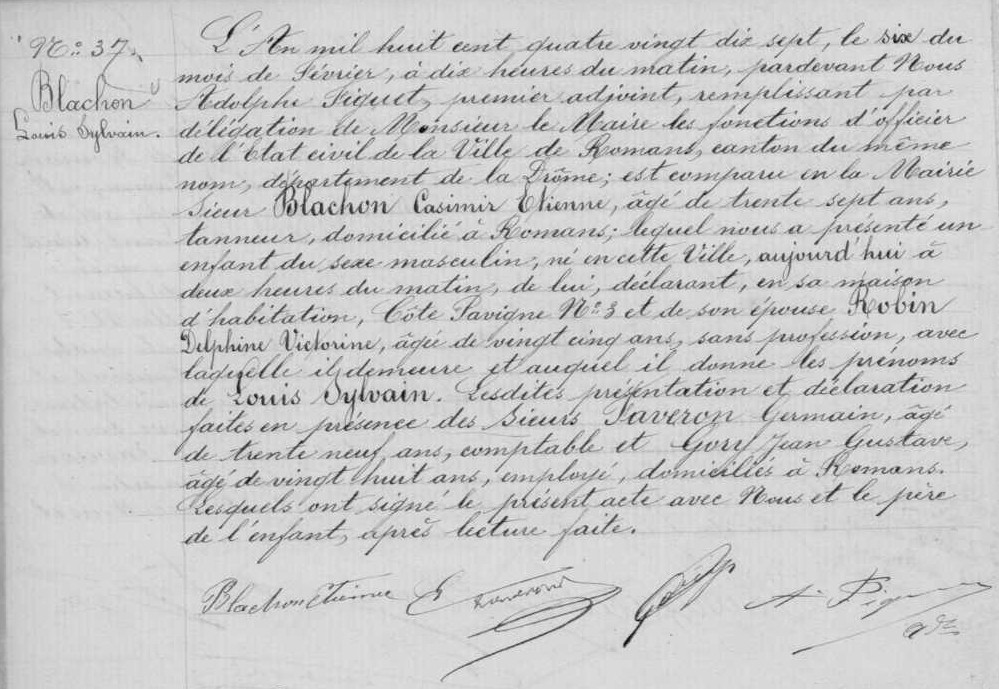 No. 37.
Blachon
Louis Sylvain.
L'An mil huit cent quatre vingt dix sept, le six du
mois de Février, à dix heures du matin, pardevant Nous
Adolphe Figuet, premier adjoint, remplissant par
délégation de Monsieur le Maire les fonctions d'officier
de l'Etat civil de la Ville de Romans, canton du même
nom, département de la Drôme; est comparu en la Mairie
Sieur Blachon Casimir Etienne, âgé de trente sept ans,
tanneur, domicilié à Romans; lequel nous a présenté un
enfant du sexe masculin, né en cette Ville, aujourd'hui à
deux heures du matin, de lui, déclarant, en sa maison
d'habitation, Côte Pavigne No. 3 et de son épouse Robin
Delphine Victorine, âgée de vingt cinq ans, sans profession, avec
laquelle il demeure et auquel il donne les prénoms
de Louis Sylvain. Lesdites présentation et déclaration
faites en présence des Sieurs Faveron Germain, âgé
de trente neuf ans, comptable et Gory Jean Gustave,
âgé de vingt huit ans, employé, domiciliés à Romans.
Lesquels ont signé le présent acte avec Nous et le père
de l'enfant, après lecture faite.
Blachon Etienne